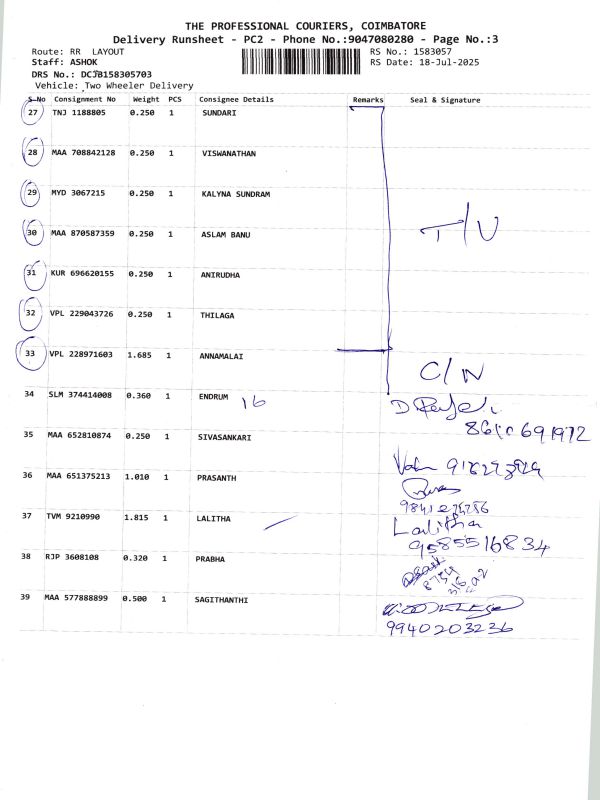 THE PROFESSIONAL COURIERS, COIMBATORE
Delivery Runsheet - PC2 - Phone No.:9047080280 - Page No.:3
Route: RR LAYOUT
RS No.: 1583057
Staff: ASHOK
RS Date: 18-Jul-2025
DRS No.: DCJB158305703
Vehicle: Two Wheeler Delivery
S-No Consignment No Weight PCS Consignee Details Remarks Seal & Signature
27 TNJ 1188805 0.250 1 SUNDARI
28 MAA 708842128 0.250 1 VISWANATHAN
29 MYD 3067215 0.250 1 KALYNA SUNDRAM
30 MAA 870587359 0.250 1 ASLAM BANU
T/U
31 KUR 696620155 0.250 1 ANIRUDHA
32 VPL 229043726 0.250 1 THILAGA
33 VPL 228971603 1.685 1 ANNAMALAI
C/N
34 SLM 374414008 0.360 1 ENDRUM 16
35 MAA 652810874 0.250 1 SIVASANKARI
36 MAA 651375213 1.010 1 PRASANTH
37 TVM 9210990 1.815 1 LALITHA
Lalitha
9585516834
38 RJP 3608108 0.320 1 PRABHA
39 MAA 577888899 0.500 1 SAGITHANTHI
9940203236